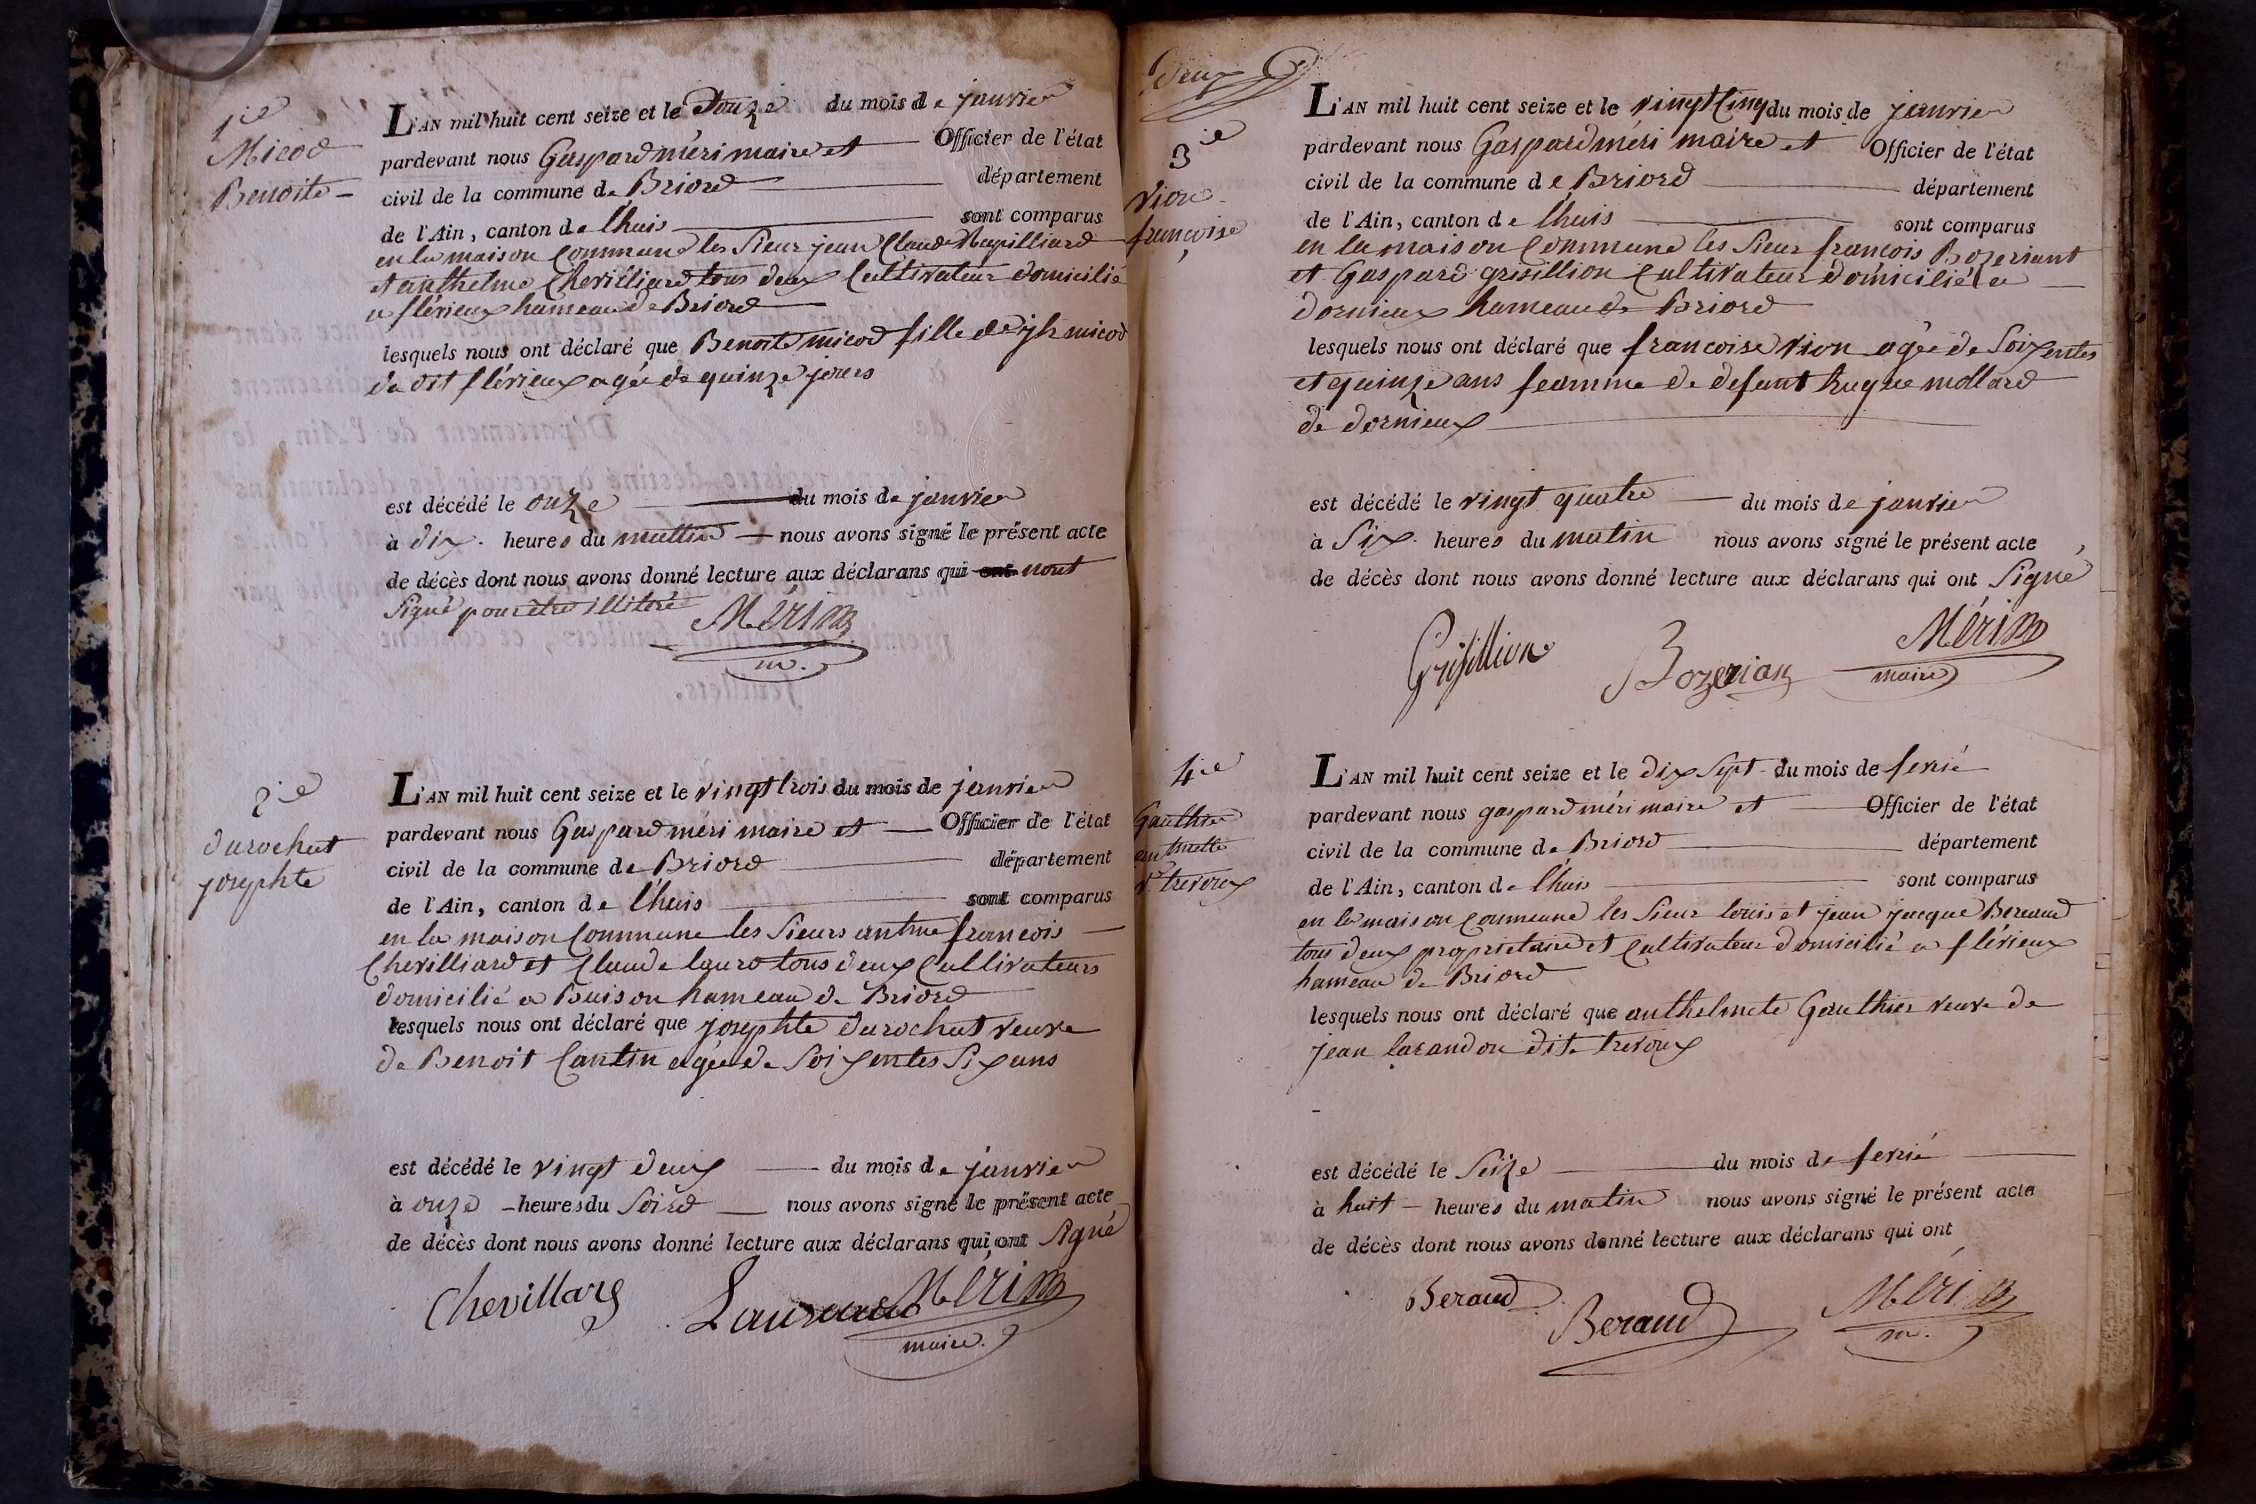 1ie
Micod
Benoite -
L'AN mil huit cent seize et le douze du mois de janvier
pardevant nous Gaspard méri maire et Officier de l'état
civil de la commune de Briord département
de l'Ain, canton de l'huis sont comparus
en la maison Commune les Sieur jean Claude
et anthelme Chevilliard tous deux Cultivateur domicilié
a flérieux hameau de Briord
lesquels nous ont déclaré que Benoite micod fille de jh micod
du dit flérieux agée de quinze jours
est décédé le onze du mois de janvier
à dix heures du mattin nous avons signé le présent acte
de décès dont nous avons donné lecture aux déclarans qui ont nont
Signé pour être illitéré
Méri
m.
2ie
durochat
josephte
L'AN mil huit cent seize et le vingt trois du mois de janvier
pardevant nous Gaspard méri maire et Officier de l'état
civil de la commune de Briord département
de l'Ain, canton de l'huis sont comparus
en la maison Commune les Sieurs antme francois
Chevilliard et Claude laurd tous deux Cultivateurs
domicilié a Buison hameau de Briord
lesquels nous ont déclaré que josephte durochat veuve
de Benoit Cantin agée de Soixentes Six ans
est décédé le vingt deux du mois de janvier
à onze heures du Soird nous avons signé le présent acte
de décès dont nous avons donné lecture aux déclarans qui ont Signé
Chevillard
Méri
maire.
deux
3ie
Vion
francoise
L'AN mil huit cent seize et le vingt Cinq du mois de janvier
pardevant nous Gaspard méri maire et Officier de l'état
civil de la commune de Briord département
de l'Ain, canton de l'huis sont comparus
en la maison Commune les Sieur francois Bozeriant
et Gaspard grisillion Cultivateur domicilié a
dornieux hameau de Briord
lesquels nous ont déclaré que francoise Vion agée de Soixentes
et quinze ans feamme de defunt hugue mollard
de dornieux
est décédé le vingt quatre du mois de janvier
à Six heures du matin nous avons signé le présent acte
de décès dont nous avons donné lecture aux déclarans qui ont Signé
Grisillion
Bozerian
Méri
maire
4ie
Gauthier
L'AN mil huit cent seize et le dix Sept du mois de fevrié
pardevant nous gaspard méri maire et Officier de l'état
civil de la commune de Briord département
de l'Ain, canton de l'huis sont comparus
en la maison Commune les Sieur louis et jean jacque Beraud
tous deux proprietaire et Cultivateur domicilié a flérieux
hameau de Briord
lesquels nous ont déclaré que anthelmete Gauthier veuve de
jean larandon dite trevoux
est décédé le Seize du mois de fevrié
à huit heures du matin nous avons signé le présent acte
de décès dont nous avons donné lecture aux déclarans qui ont
Beraud
Beraud
Méri
m.